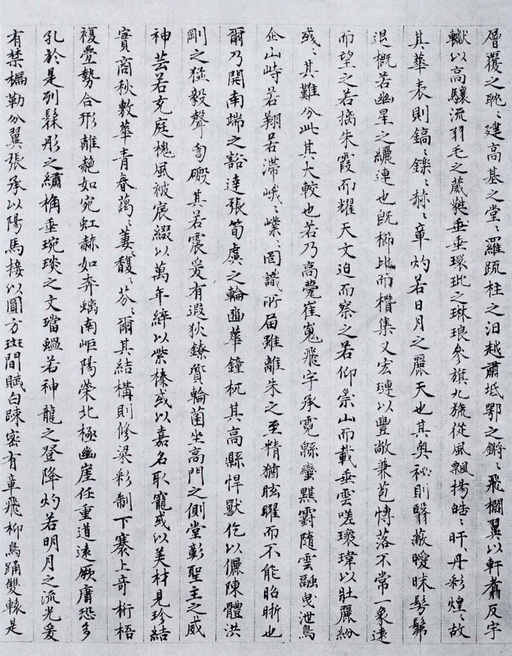 層覆之耽〻建高基之堂〻羅疏柱之汩越肅坻鄂之鏘〻飛櫩翼以軒翥反宇
轍以高驤流羽毛之葳蕤垂垂環玭之琳琅參旗九旒從風飄揚皓〻旰〻丹彩煌〻故
其華表則鎬〻鑠〻赫〻章灼若日月之麗天也其奧秘則翳蔽曖昧髣髴
退概若幽星之纚連也既櫛比而欑集又宏璉以豐敞兼苞博落不常一象遠
而望之若摛朱霞而耀天文迫而察之若仰崇山而載垂雲嗟瓌瑋以壯麗紛
彧〻其難分此其大較也若乃高甍崔嵬飛宇承霓緜蠻黮霴隨雲融曳泄鳥
企山峙若翔若滯峨〻嶪〻罔識所屆雖離朱之至精猶眩曜而不能昭晢也
爾乃開南端之豁達張筍虡之輪豳華鐘杌其高縣悍獸仡以儷陳體洪
剛之猛毅聲訇磤其若震爰有遐狄鐐質輪菌坐高門之側堂彰聖主之威
神芸若充庭槐風被宸綴以萬年綷以紫榛或以嘉名取寵或以美材見珍結
實商秋敷華青春藹〻萋〻馥〻芬〻爾其結構則修梁彩制下褰上奇桁梧
複疊勢合形離赩如宛虹赫如奔螭南岠陽榮北極幽崖任重道遠厥庸恐多
孔於是列髹彤之繡桷垂琬琰之文璫蝹若神龍之登降灼若明月之流光爰
有禁楄勒分翼張承以陽馬接以圓方斑間賦白疎密有章飛枊鳥踊雙轅是